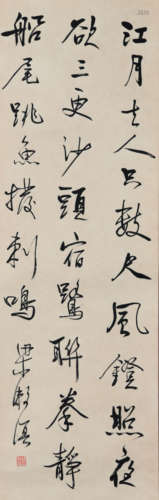 江月去人只數尺風鐙照夜
欲三更沙頭宿鷺聯拳靜
船尾跳魚撥剌鳴 梁漱溟